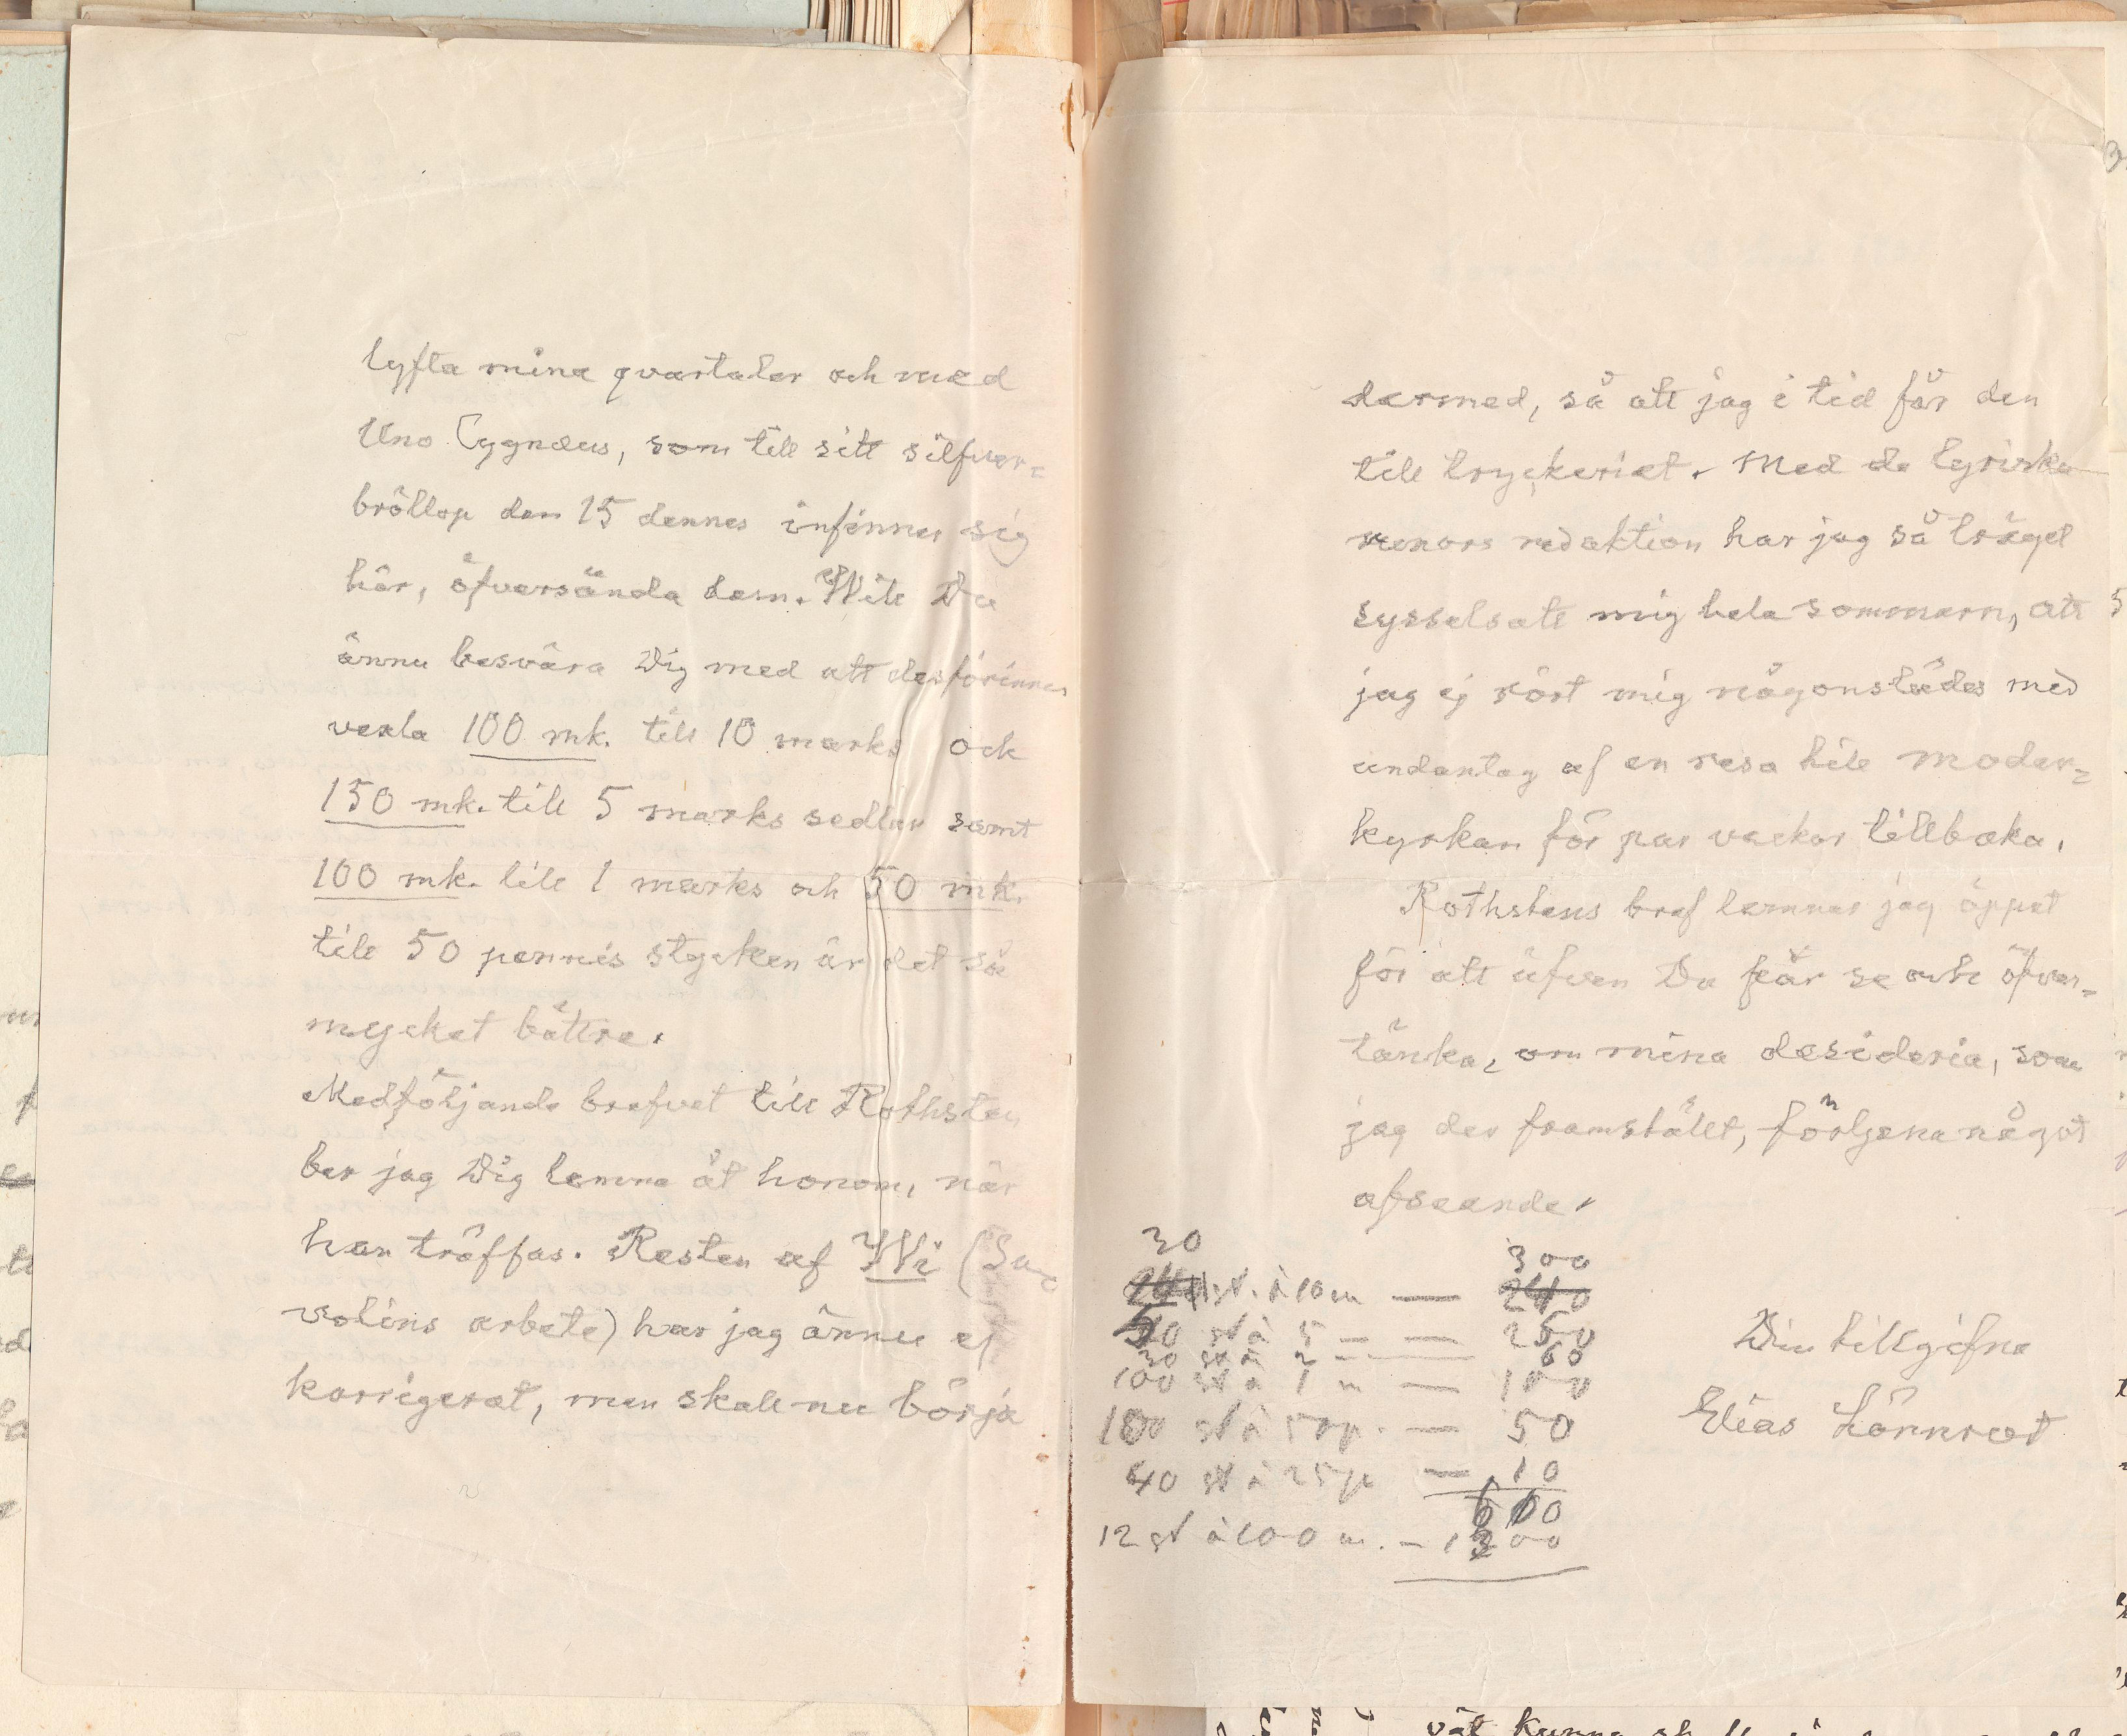 lyfta mina qvartaler och med
Uno Cygnæus, som till sitt silfver=
bröllop den 15 dennes infinner sig
här, öfversända dem. Will Du
ännu besvära Dig med att desförinnan
vexla 100 mk. till 10 marks och
150 mk. till 5 marks sedlar samt
100 mk. till 1 marks och 50 mk.
till 50 pennis stycken är det så
mycket bättre.
Medföljande brefvet till Rothsten
ber jag Dig lemna åt honom, när
han träffas. Resten af Wi (Sa=
volins arbete) har jag ännu ej
korrigerat, men skall nu börja
dermed, så att jag i tid får den
till tryckeriet. Med de lyriska
runors redaktion har jag så träget
sysselsatt mig hela sommarn, att
jag ej rört mig någonstädes med
undantag af en resa till moder=
kyrkan för par veckor tillbaka.
Rothstens bref lemnar jag öppet
för att äfven Du får se och öfver=
tänka, om mina desideria, som
jag der framstält, förtjena något
afseende.
30 300
24 st. à 10 m — 240
50 st à 5 — — 250
30 st à 2 — — 60
100 st à 1 m — 100
100 st à 50 p. — 50
40 st à 25 p — 10
12 st à 100 m. — 1200
Din tillgifne
Elias Lönnrot